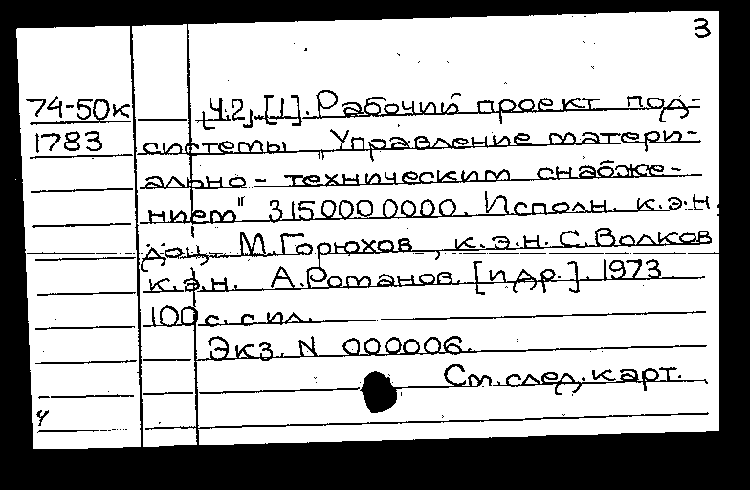 3
74-50к Ч.2, [1]. Рабочий проект под-
1783 системы „Управление матери-
ально-техническим снабже-
нием" 3150000000. Исполн. к.э.н.
доц. М.Горюхов, к.э.н. С.Волков
к.э.н. А.Романов. [и др.]. 1973
100 с. с ил.
Экз. N 000006.
См. след. карт.